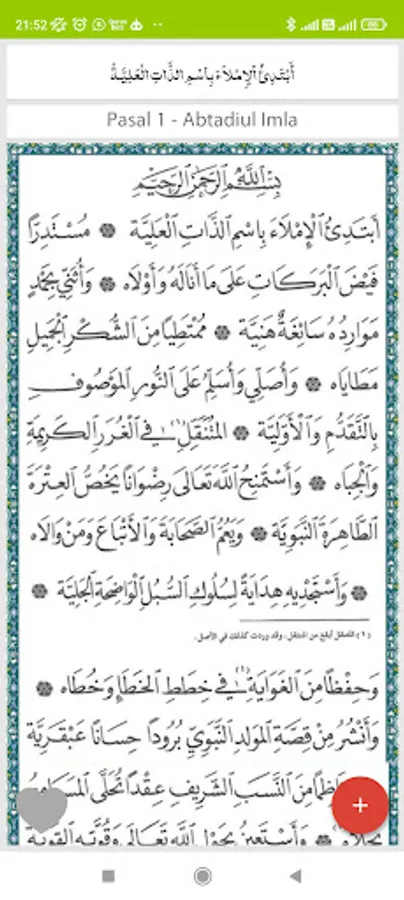 21:52
أَبْتَدِئُ الْإِمْلَاءَ بِاسْمِ الذَّاتِ الْعَلِيَّةْ
Pasal 1 - Abtadiul Imla
بِسْمِ اللَّهِ الرَّحْمَٰنِ الرَّحِيمِ
أَبْتَدِئُ الْإِمْلَاءَ بِاسْمِ الذَّاتِ الْعَلِيَّةْ ۞ مُسْتَدِرًّا
فَيْضَ الْبَرَكَاتِ عَلَى مَا أَنَالَهُ وَأَوْلَاهْ ۞ وَأُثَنِّي بِحَمْدٍ
مَوَارِدُهُ سَائِغَةٌ هَنِيَّةْ ۞ مُمْتَطِيًا مِنَ الشُّكْرِ الْجَمِيلِ
مَطَايَاهْ ۞ وَأُصَلِّي وَأُسَلِّمُ عَلَى النُّورِ الْمَوْصُوفِ
بِالتَّقَدُّمِ وَالْأَوَّلِيَّةْ ۞ الْمُتَنَقِّلِ (١) فِي الْغُرَرِ الْكَرِيمَةِ
وَالْجِبَاهْ ۞ وَأَسْتَمْنِحُ اللَّهَ تَعَالَى رِضْوَانًا يَخُصُّ الْعِتْرَةَ
الطَّاهِرَةَ النَّبَوِيَّةْ ۞ وَيَعُمُّ الصَّحَابَةَ وَالْأَتْبَاعَ وَمَنْ وَالَاهْ
۞ وَأَسْتَجْدِيهِ هِدَايَةً لِسُلُوكِ السُّبُلِ الْوَاضِحَةِ الْجَلِيَّةْ ۞
(١) المتنقل أبلغ من المنتقل، وقد وردت كذلك في الأصل.
وَحِفْظًا مِنَ الْغَوَايَةِ (١) فِي خِطَطِ الْخَطَإِ وَخُطَاهْ ۞
وَأَنْشُرُ مِنْ قِصَّةِ الْمَوْلِدِ النَّبَوِيِّ بُرُودًا حِسَانًا عَبْقَرِيَّةْ
نَاظِمًا مِنَ النَّسَبِ الشَّرِيفِ عِقْدًا تُحَلَّى الْمَسَامِعُ
بِحُلَاهْ ۞ وَأَسْتَعِينُ بِحَوْلِ اللَّهِ تَعَالَى وَقُوَّتِهِ الْقَوِيَّةْ